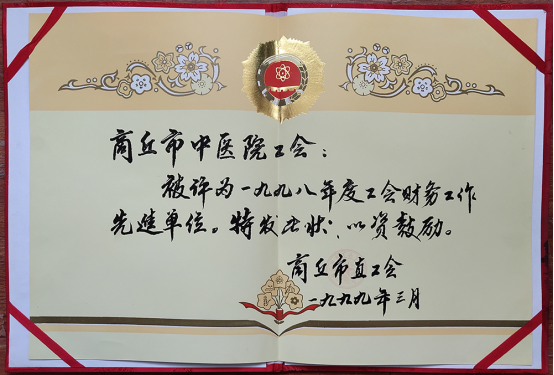 商丘市中医院工会：
被评为一九九八年度工会财务工作
先进单位。特发此状，以资鼓励。
商丘市直工会
一九九九年三月